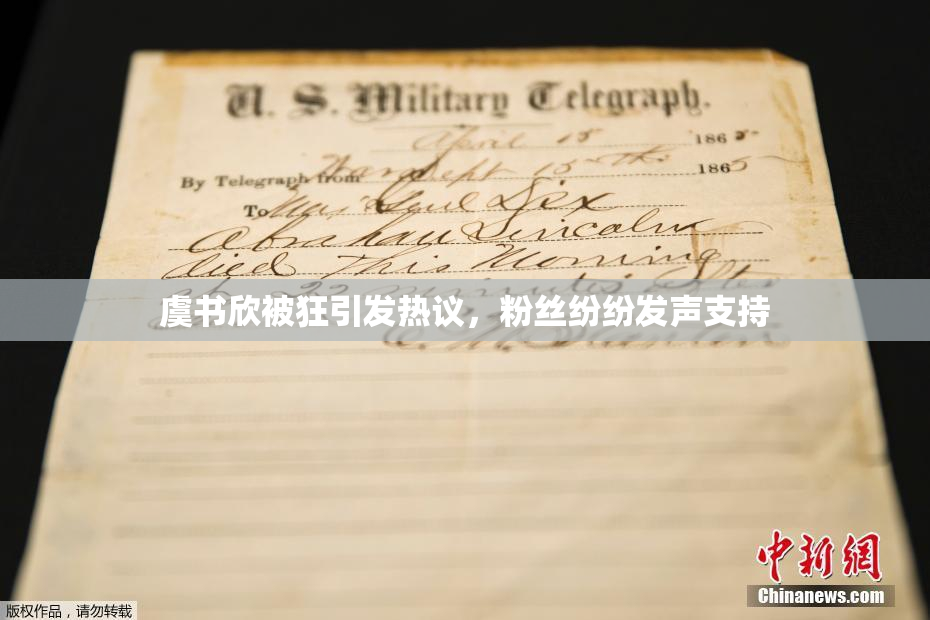 U. S. Military Telegraph.
April 15 1865
By Telegraph from War Dept 15th 1865
To Maj Genl Dix
Abraham Lincoln
died This Morning
at 22 minutes after
虞书欣被狂引发热议，粉丝纷纷发声支持
中新网
Chinanews.com
版权作品，请勿转载